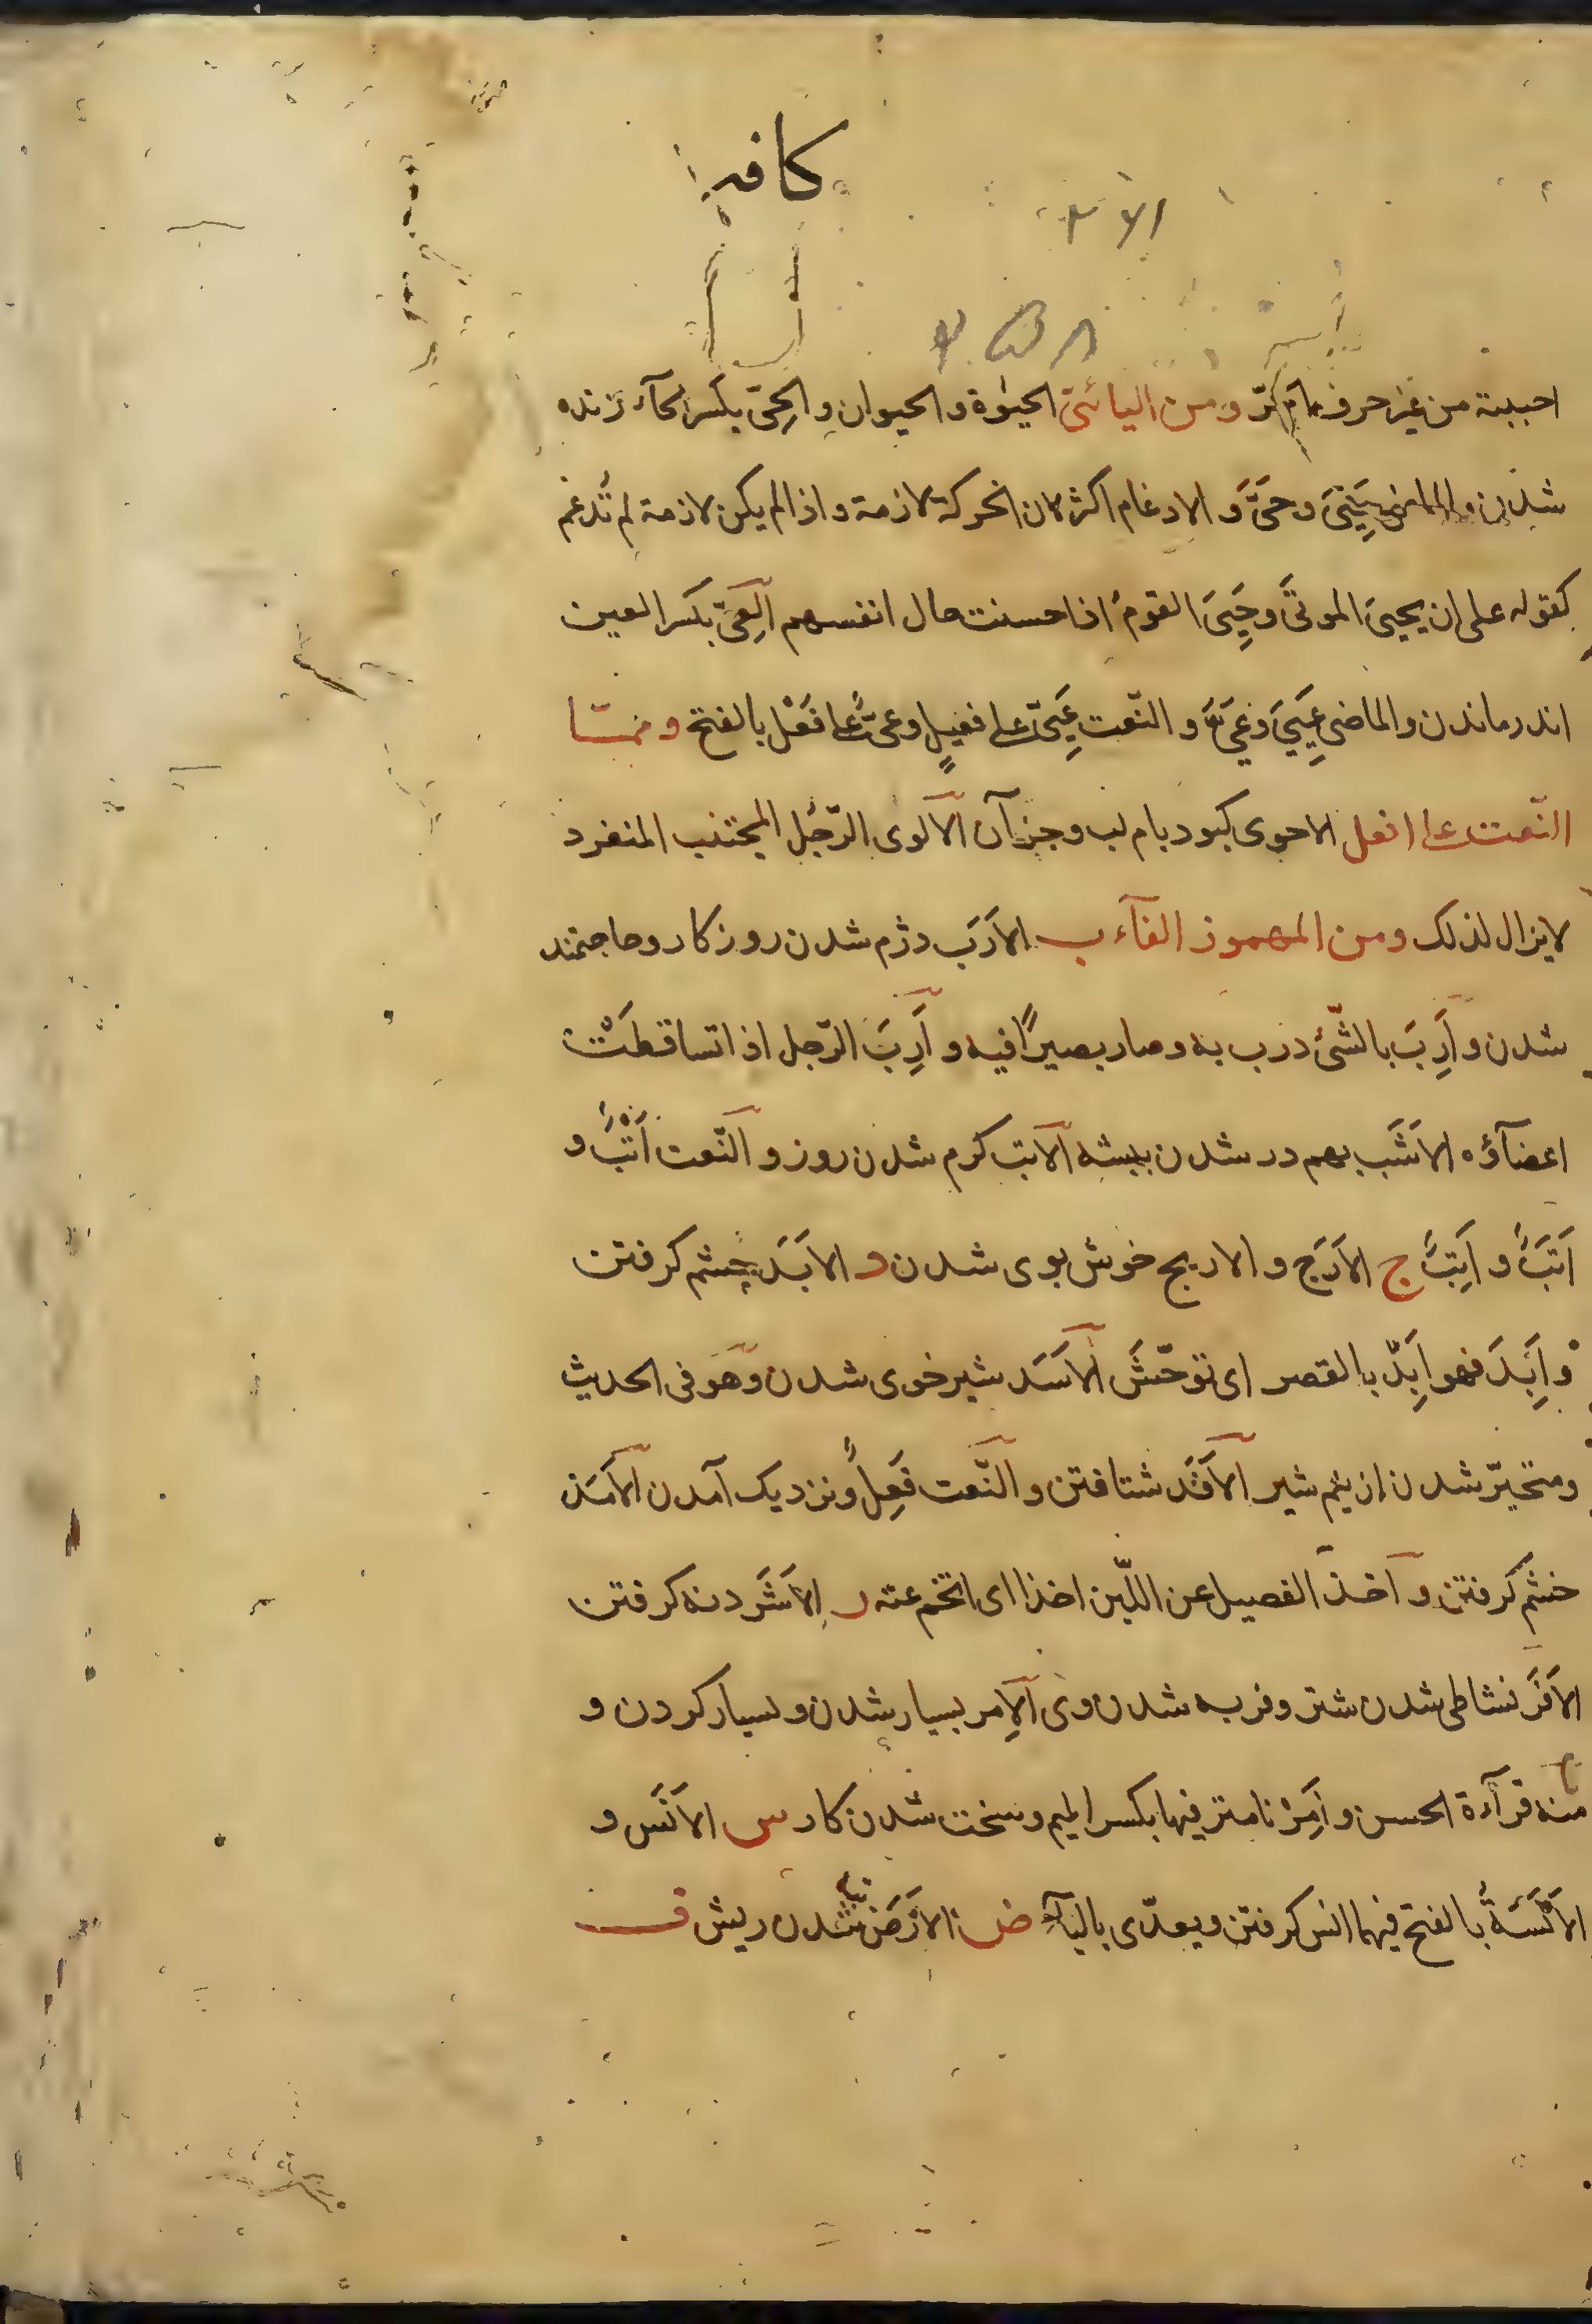 كافيه
احببته من غير حرف ومن اليائىّ الحيوٰة والحيوان والحِىّ بكسر الحآء زنده
شدن والماضى حَيِىَ وحَىَّ والادغام اكثر لان الحركة لازمة واذا لم يكن لازمة لم تُدغم
كقوله على ان يحيىَ الموتىَ وحَيِىَ القومُ اذا حسنت حال انفسهم اَلعِىّ بكسر العين
اندرماندن والماضى عَيِىَ وعَىَّ والنّعت عَيِىٌّ على فعيلٍ وعىٌّ على فَعْل بالفتح وممّا
النّعت على افعل الاحوى كبود بام لب وجز آن الآلوى الرّجُل المجتنب المنفرد
لايزال لذلك ومن المهموز الفآء ب الاَرَب دژم شدن روزكار وحاجتمند
شدن وآرِبَ بالشّئ درب به وصار بصيرًا فيه وآرِبَ الرّجل اذا تساقطَتْ
اعضآؤه الاَشَب بهم در شدن بيشه الآبت كرم شدن روز والنّعت اَبْتٌ و
اَبَتٌ و اَبِتٌ ج الاَرَج والاريج خوش بوى شدن د الاَبَد خشم كرفتن
واَبِدَ فهو اَبِدٌ بالقصر اى توحّشَ الآسَد شير خوى شدن وهو فى الحديث
ومتحيّر شدن از بيم شير الاَفَد شتافتن والنّعت فَعِلٌ ونزديك آمدن الاَمَد
خشم كرفتن وآخذ الفصيل عن اللّبن اخذا اى اتّخم عنه ر الاَشَر دنه كرفتن
الاَفَر نشاطى شدن شتر وفربه شدن وى الآمر بسيار شدن وبسيار كردن و
منه قرآءة الحسن واَمِرْنا مترفيها بكسر الميم وسخت شدن كار س الاَنَس و
الاَنَسَةُ بالفتح فيهما انس كرفتن ويعدّى بالبآء ض الاَرَض تباه شدن ريش ق